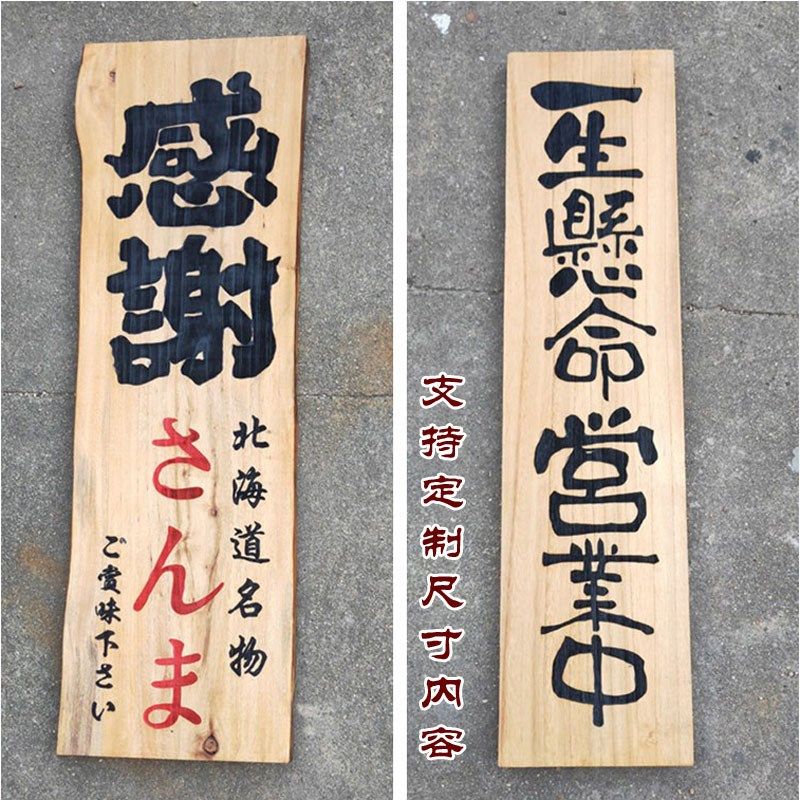 感謝
北海道名物
さんま
ご賞味下さい
一生懸命営業中
支持定制尺寸内容